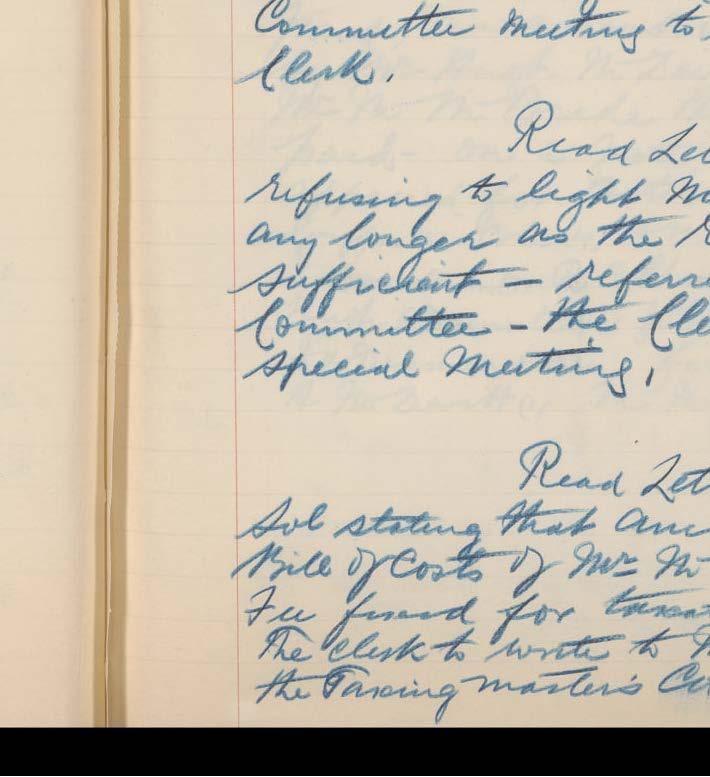 Committee Meeting to
Clerk.
Read Let
refusing to light
any longer as the
sufficient - referre
Committee - the Cle
special Meeting,
Read Let
Sol stating that
Bill of Costs of Mr M
Fee for
The clerk to write to
the Taxing master's